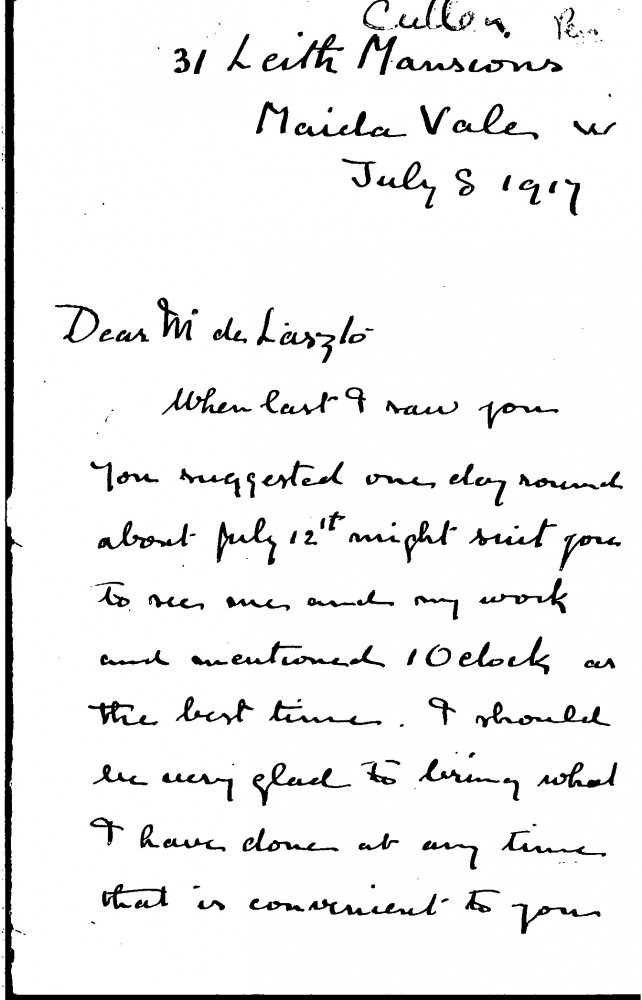 Cullen
31 Leith Mansions
Maida Vale W
July 8 1917
Dear Mr de László
When last I saw you
you suggested one day round
about July 12th might suit you
to see me and my work
and mentioned 1 Oclock as
the best time. I should
be very glad to bring what
I have done at any time
that is convenient to you